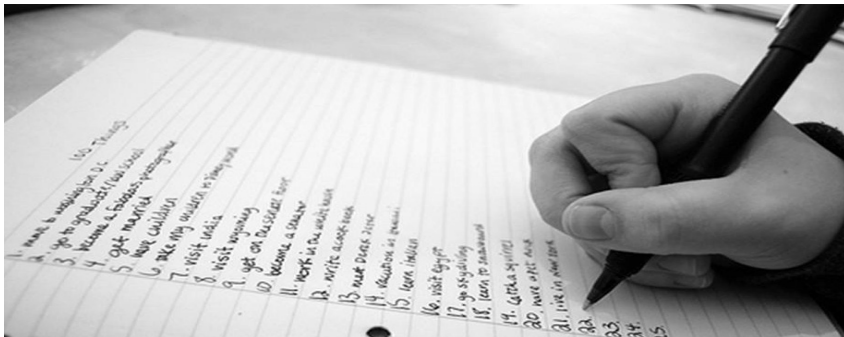 100 Things
1. move to washington D.C
2. go to graduate/law school
3. become a fabulous photographer
4. get married
5. have children
6. take my children to disney world
7. visit India
8. visit wyoming
9. get on the senate floor
10. become a senator
11. work in the white house
12. write a cook book
13. meet
14. vacation in
15. learn italian
16. visit Egypt
17. go skydiving
18. learn to snowboard
19. catch a squirrel
20. have a pet
21. live in New York
22.
23.
24.
25.